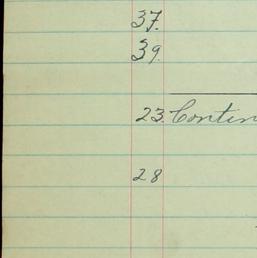 37.
39.
23. Contin
28